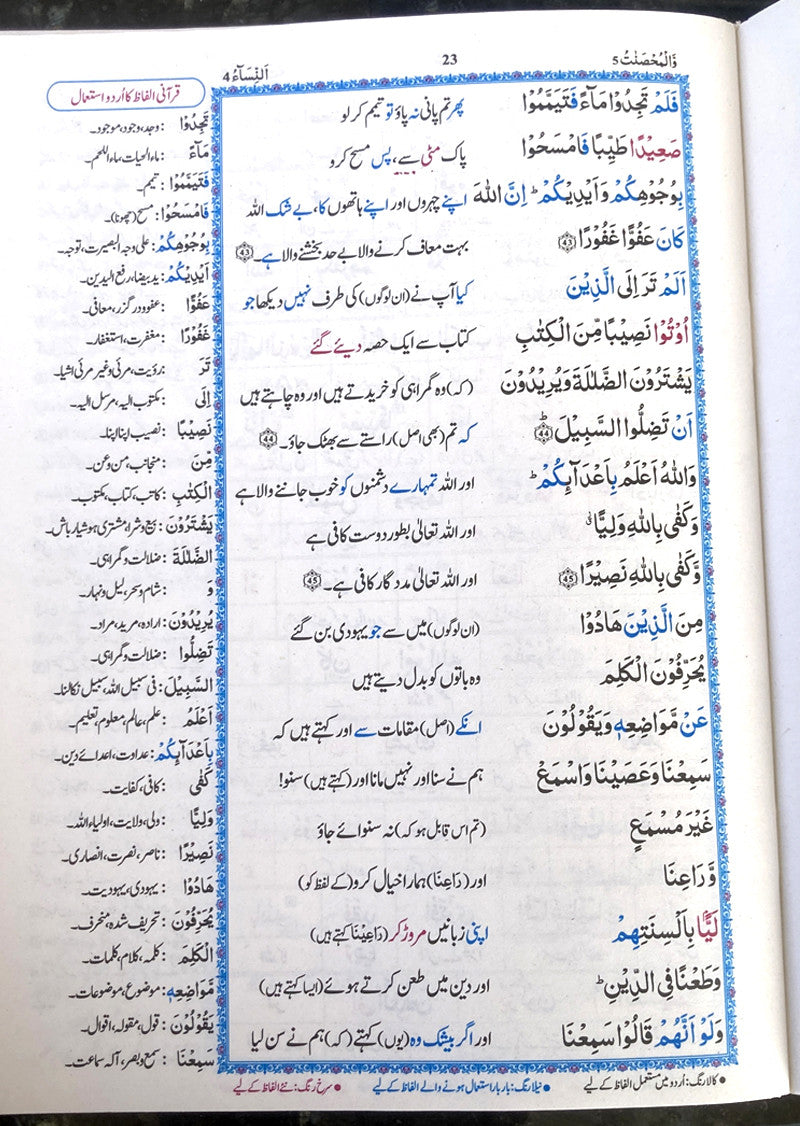 وَالْمُحْصَنٰتُ 5
23
اَلنِّسَآءُ 4
فَلَمْ تَجِدُوْا مَآءً فَتَيَمَّمُوْا پھر تم پانی نہ پاؤ تو تیمم کر لو
صَعِيْدًا طَيِّبًا فَامْسَحُوْا پاک مٹی سے، پس مسح کرو
بِوُجُوْهِكُمْ وَاَيْدِيْكُمْ ؕ اِنَّ اللّٰهَ اپنے چہروں اور اپنے ہاتھوں کا، بے شک اللہ
كَانَ عَفُوًّا غَفُوْرًا ﴿43﴾ بہت معاف کرنے والا بے حد بخشنے والا ہے۔ ﴿43﴾
اَلَمْ تَرَ اِلَى الَّذِيْنَ کیا آپ نے (ان لوگوں) کی طرف نہیں دیکھا جو
اُوْتُوْا نَصِيْبًا مِّنَ الْكِتٰبِ کتاب سے ایک حصہ دیئے گئے
يَشْتَرُوْنَ الضَّلٰلَةَ وَيُرِيْدُوْنَ (کہ) وہ گمراہی کو خریدتے ہیں اور وہ چاہتے ہیں
اَنْ تَضِلُّوا السَّبِيْلَ ؕ ﴿44﴾ کہ تم (بھی اصل) راستے سے بھٹک جاؤ۔ ﴿44﴾
وَاللّٰهُ اَعْلَمُ بِاَعْدَآئِكُمْ ؕ اور اللہ تمہارے دشمنوں کو خوب جاننے والا ہے
وَكَفٰى بِاللّٰهِ وَلِيًّا ۫ۙ اور اللہ تعالیٰ بطور دوست کافی ہے
وَّكَفٰى بِاللّٰهِ نَصِيْرًا ﴿45﴾ اور اللہ تعالیٰ مددگار کافی ہے۔ ﴿45﴾
مِنَ الَّذِيْنَ هَادُوْا (ان لوگوں) میں سے جو یہودی بن گئے
يُحَرِّفُوْنَ الْكَلِمَ وہ باتوں کو بدل دیتے ہیں
عَنْ مَّوَاضِعِهٖ وَيَقُوْلُوْنَ انکے (اصل) مقامات سے اور کہتے ہیں کہ
سَمِعْنَا وَعَصَيْنَا وَاسْمَعْ ہم نے سنا اور نہیں مانا اور (کہتے ہیں) سنو!
غَيْرَ مُسْمَعٍ (تم اس قابل ہو کہ) نہ سنوائے جاؤ
وَّرَاعِنَا اور (رَاعِنَا) ہمارا خیال کرو (کے لفظ کو)
لَيًّۢا بِاَلْسِنَتِهِمْ اپنی زبانیں مروڑ کر (رَاعِیْنَا کہتے ہیں)
وَطَعْنًا فِى الدِّيْنِ ؕ اور دین میں طعن کرتے ہوئے (ایسا کہتے ہیں)
وَلَوْ اَنَّهُمْ قَالُوْا سَمِعْنَا اور اگر بیشک وہ (یوں) کہتے (کہ) ہم نے سن لیا
قرآنی الفاظ کا اُردو استعمال
تَجِدُوْا : وجد، وجود، موجود۔
مَآءً : ماء الحیات، ماء اللحم۔
فَتَيَمَّمُوْا : تیمم۔
فَامْسَحُوْا : مسح (چھونا)۔
بِوُجُوْهِكُمْ : علی وجہ البصیرت، توجہ۔
اَيْدِيْكُمْ : ید بیضا، رفع الیدین۔
عَفُوًّا : عفو و درگزر، معافی۔
غَفُوْرًا : مغفرت، استغفار۔
تَرَ : رؤیت، مرئی و غیر مرئی اشیا۔
اِلَى : مکتوب الیہ، مرسل الیہ۔
نَصِيْبًا : نصیب اپنا اپنا۔
مِّنَ : منجانب، من و عن۔
الْكِتٰبِ : کاتب، کتاب، مکتوب۔
يَشْتَرُوْنَ : بیع و شرا، مشتری ہوشیار باش۔
الضَّلٰلَةَ : ضلالت و گمراہی۔
وَ : شام و سحر، لیل و نہار۔
يُرِيْدُوْنَ : ارادہ، مرید، مراد۔
تَضِلُّوا : ضلالت و گمراہی۔
السَّبِيْلَ : فی سبیل اللہ، سبیل نکالنا۔
اَعْلَمُ : علم، عالم، معلوم، تعلیم۔
بِاَعْدَآئِكُمْ : عداوت، اعدائے دین۔
كَفٰى : کافی، کفایت۔
وَلِيًّا : ولی، ولایت، اولیاء اللہ۔
نَصِيْرًا : ناصر، نصرت، انصاری۔
هَادُوْا : یہودی، یہودیت۔
يُحَرِّفُوْنَ : تحریف شدہ، منحرف۔
الْكَلِمَ : کلمہ، کلام، کلمات۔
مَّوَاضِعِهٖ : موضوع، موضوعات۔
يَقُوْلُوْنَ : قول، مقولہ، اقوال۔
سَمِعْنَا : سمع و بصر، آلہ سماعت۔
● کالا رنگ: اُردو میں مستعمل الفاظ کے لیے ● نیلا رنگ: بار بار استعمال ہونے والے الفاظ کے لیے ● سرخ رنگ: نئے الفاظ کے لیے